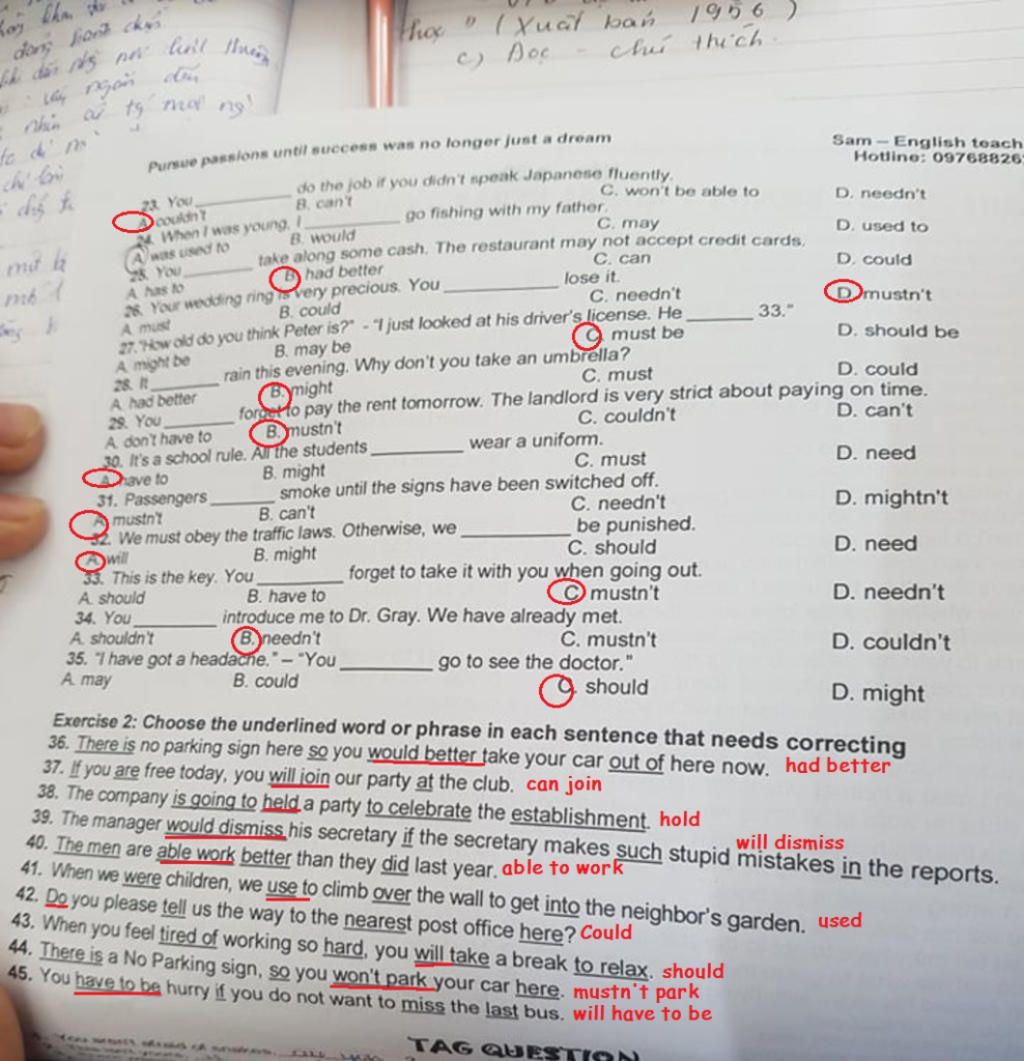 học " (Xuất bản 1956)
c) Đọc - chú thích.
Pursue passions until success was no longer just a dream
Sam – English teach
Hotline: 09768826
23. You __________ do the job if you didn't speak Japanese fluently.
A. couldn't B. can't C. won't be able to D. needn't
24. When I was young, I __________ go fishing with my father.
A. was used to B. would C. may D. used to
25. You __________ take along some cash. The restaurant may not accept credit cards.
A. has to B. had better C. can D. could
26. Your wedding ring is very precious. You __________ lose it.
A. must B. could C. needn't D. mustn't
27. "How old do you think Peter is?" - "I just looked at his driver's license. He ______ 33."
A. might be B. may be C. must be D. should be
28. It ________ rain this evening. Why don't you take an umbrella?
A. had better B. might C. must D. could
29. You ________ forget to pay the rent tomorrow. The landlord is very strict about paying on time.
A. don't have to B. mustn't C. couldn't D. can't
30. It's a school rule. All the students __________ wear a uniform.
A. have to B. might C. must D. need
31. Passengers _______ smoke until the signs have been switched off.
A. mustn't B. can't C. needn't D. mightn't
32. We must obey the traffic laws. Otherwise, we __________ be punished.
A. will B. might C. should D. need
33. This is the key. You _________ forget to take it with you when going out.
A. should B. have to C. mustn't D. needn't
34. You _________ introduce me to Dr. Gray. We have already met.
A. shouldn't B. needn't C. mustn't D. couldn't
35. "I have got a headache." – "You __________ go to see the doctor."
A. may B. could C. should D. might
Exercise 2: Choose the underlined word or phrase in each sentence that needs correcting
36. There is no parking sign here so you would better take your car out of here now. had better
37. If you are free today, you will join our party at the club. can join
38. The company is going to held a party to celebrate the establishment. hold
39. The manager would dismiss his secretary if the secretary makes such stupid mistakes in the reports. will dismiss
40. The men are able work better than they did last year. able to work
41. When we were children, we use to climb over the wall to get into the neighbor's garden. used
42. Do you please tell us the way to the nearest post office here? Could
43. When you feel tired of working so hard, you will take a break to relax. should
44. There is a No Parking sign, so you won't park your car here. mustn't park
45. You have to be hurry if you do not want to miss the last bus. will have to be
TAG QUESTION